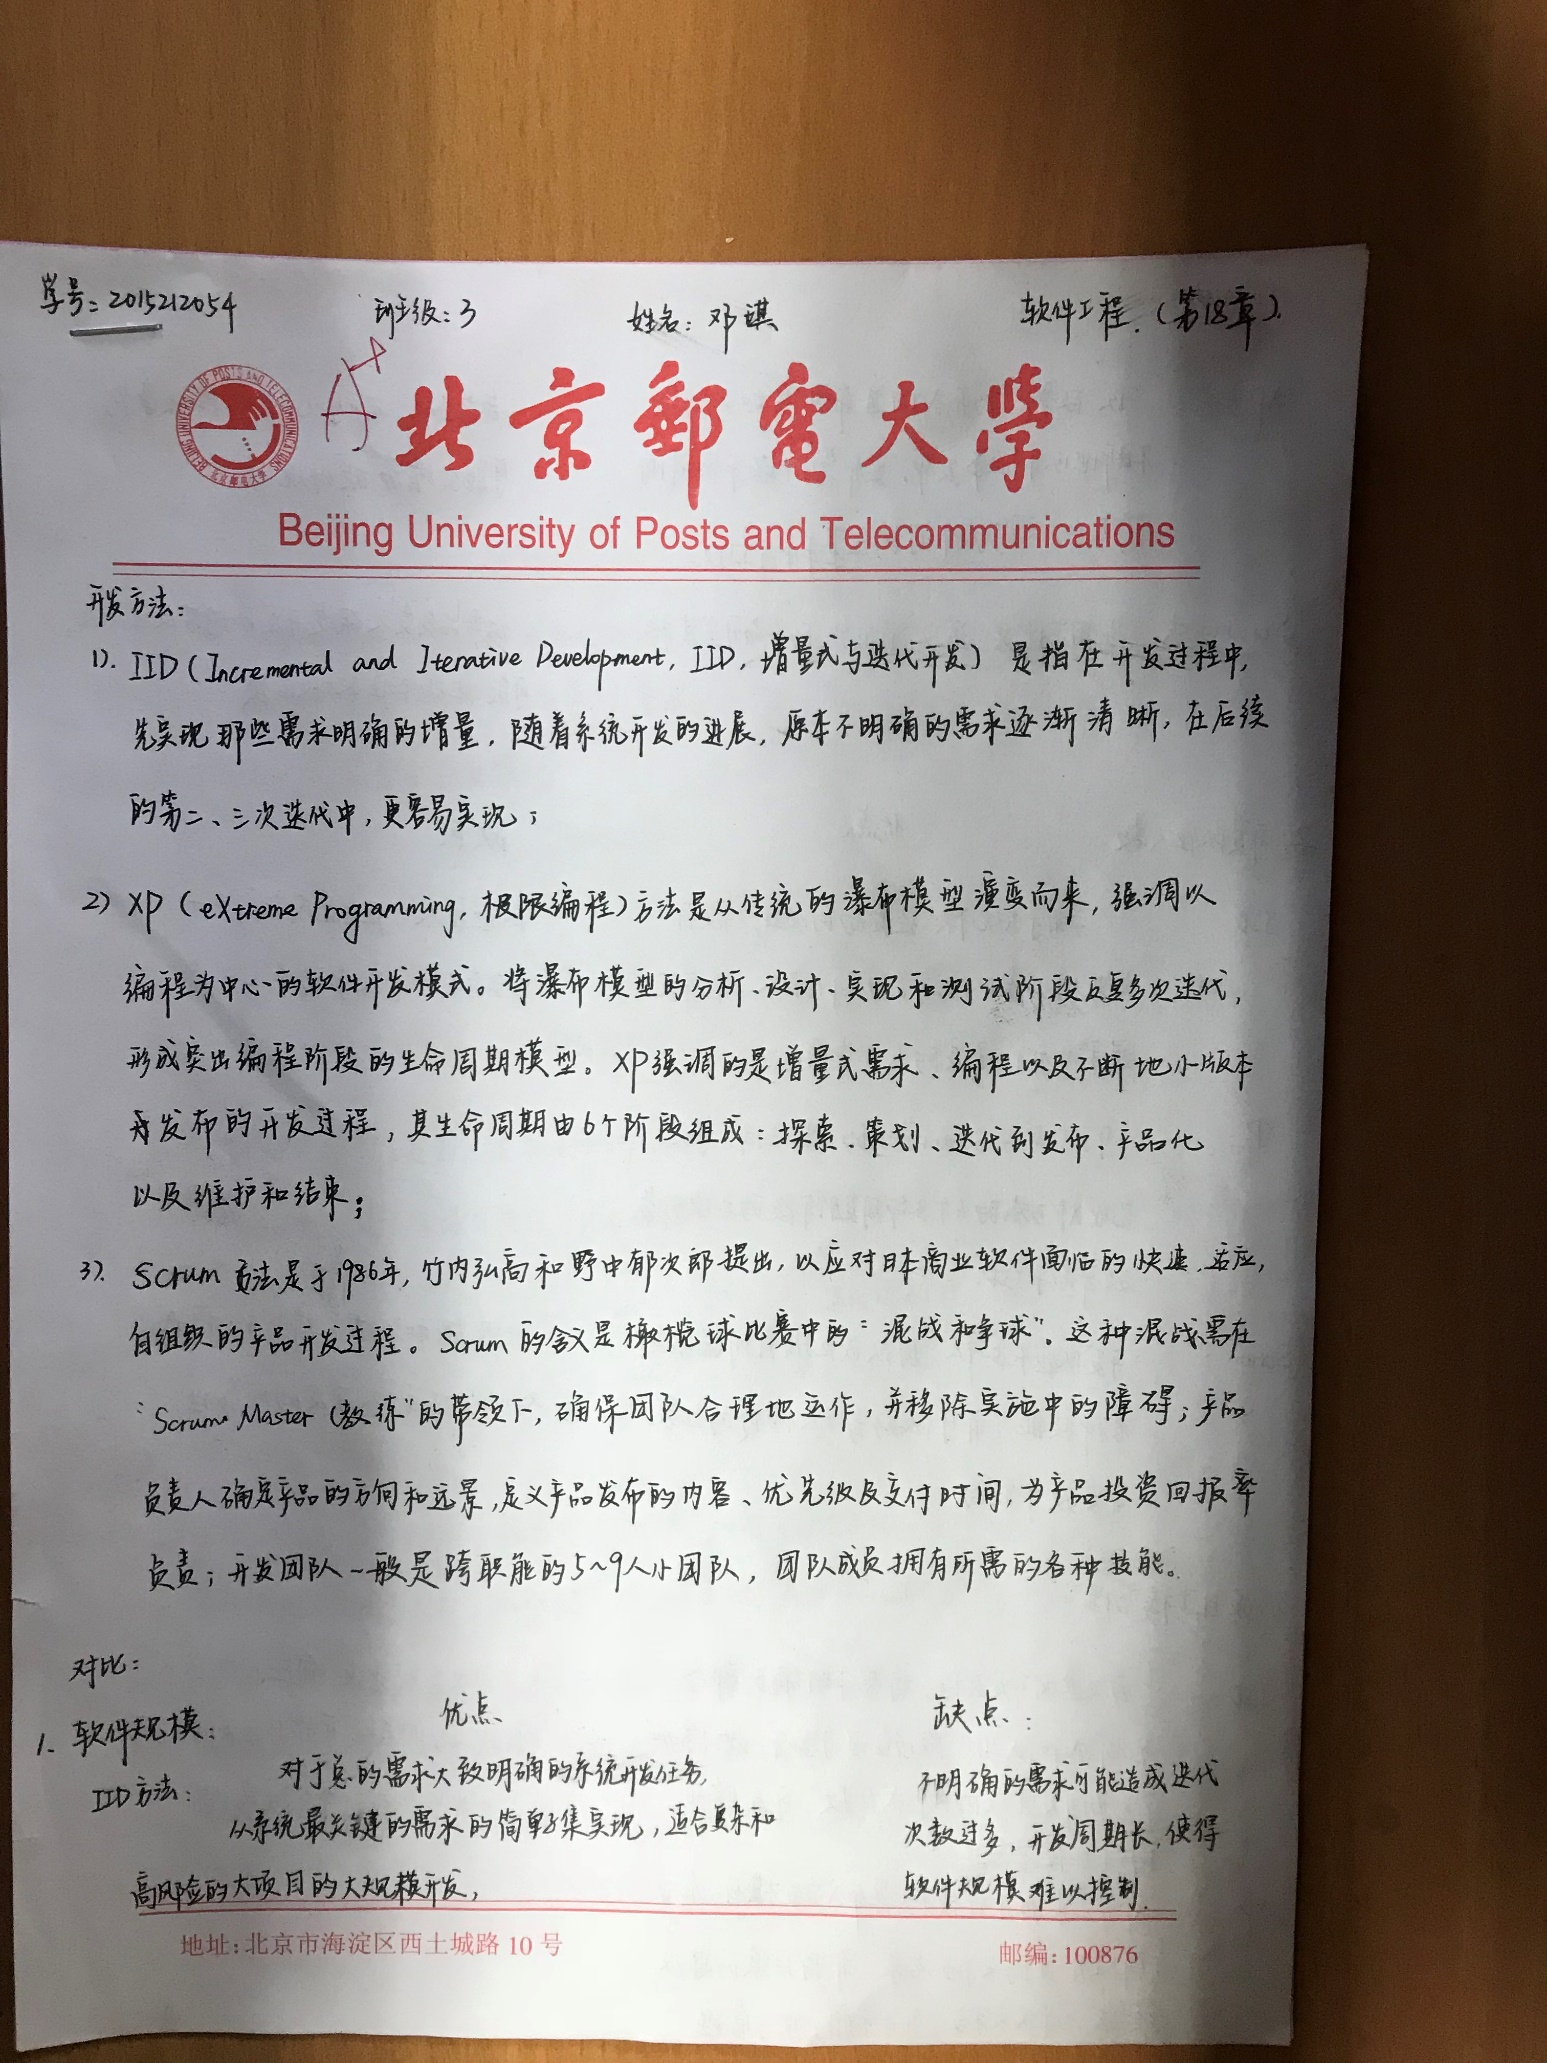 学号:2015212054 班级:3 姓名:邓祺 软件工程.(第18章).
A+
BEIJING UNIVERSITY OF POSTS AND TELECOMMUNICATIONS
北京邮电大学
北京郵電大學
Beijing University of Posts and Telecommunications
开发方法:
1). IID(Incremental and Iterative Development, IID,增量式与迭代开发)是指在开发过程中,
先实现那些需求明确的增量,随着系统开发的进展,原本不明确的需求逐渐清晰,在后续
的第二、三次迭代中,更容易实现;
2) XP(eXtreme Programming,极限编程)方法是从传统的瀑布模型演变而来,强调以
编程为中心的软件开发模式。将瀑布模型的分析、设计、实现和测试阶段反复多次迭代,
形成突出编程阶段的生命周期模型。XP强调的是增量式需求、编程以及不断地小版本
发布的开发过程,其生命周期由6个阶段组成:探索、策划、迭代到发布、产品化
以及维护和结束;
3). Scrum方法是于1986年,竹内弘高和野中郁次郎提出,以应对日本商业软件面临的快速、适应,
自组织的产品开发过程。Scrum的含义是橄榄球比赛中的"混战和争球"。这种混战需在
"Scrum Master(教练"的带领下,确保团队合理地运作,并移除实施中的障碍;产品
负责人确定产品的方向和远景,定义产品发布的内容、优先级及交付时间,为产品投资回报率
负责;开发团队一般是跨职能的5~9人小团队,团队成员拥有所需的各种技能。
对比:
1. 软件规模: 优点 缺点:
IID方法: 对于总的需求大致明确的系统开发任务, 不明确的需求可能造成迭代
从系统最关键的需求的简单子集实现,适合复杂和 次数过多,开发周期长,使得
高风险的大项目的大规模开发, 软件规模难以控制.
地址:北京市海淀区西土城路10号 邮编:100876